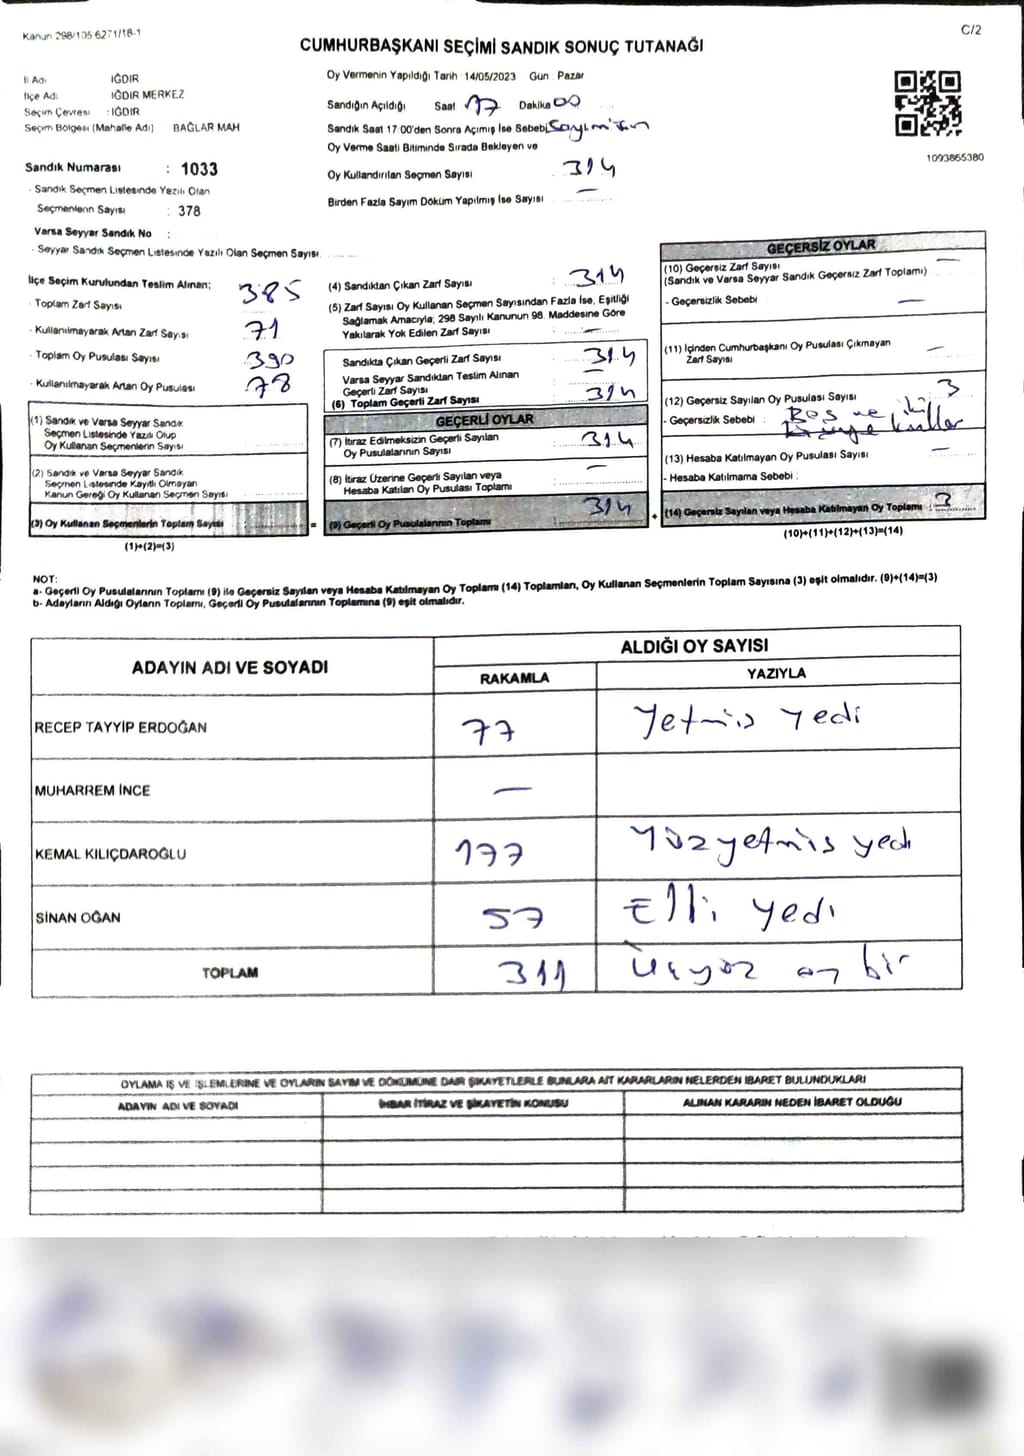 Kanun 298/105 6271/18-1
C/2
CUMHURBAŞKANI SEÇİMİ SANDIK SONUÇ TUTANAĞI
İl Adı IĞDIR
İlçe Adı IĞDIR MERKEZ
Seçim Çevresi : IĞDIR
Seçim Bölgesi (Mahalle Adı) BAĞLAR MAH
Sandık Numarası : 1033
- Sandık Seçmen Listesinde Yazılı Olan
Seçmenlerin Sayısı : 378
Varsa Seyyar Sandık No :
- Seyyar Sandık Seçmen Listesinde Yazılı Olan Seçmen Sayısı
Oy Vermenin Yapıldığı Tarih 14/05/2023 Gün Pazar
Sandığın Açıldığı Saat 17 Dakika 00
Sandık Saat 17:00'den Sonra Açımış İse Sebebi
Oy Verme Saati Bitiminde Sırada Bekleyen ve
Oy Kullandırılan Seçmen Sayısı : 314
Birden Fazla Sayım Döküm Yapılmış İse Sayısı —
1093865380
İlçe Seçim Kurulundan Teslim Alınan; 385
- Toplam Zarf Sayısı
- Kullanılmayarak Artan Zarf Sayısı 71
- Toplam Oy Pusulası Sayısı 390
- Kullanılmayarak Artan Oy Pusulası 78
(1) Sandık ve Varsa Seyyar Sandık
Seçmen Listesinde Yazılı Olup
Oy Kullanan Seçmenlerin Sayısı
(2) Sandık ve Varsa Seyyar Sandık
Seçmen Listesinde Kayıtlı Olmayan
Kanun Gereği Oy Kullanan Seçmen Sayısı
(3) Oy Kullanan Seçmenlerin Toplam Sayısı =
(1)+(2)=(3)
(4) Sandıktan Çıkan Zarf Sayısı : 314
(5) Zarf Sayısı Oy Kullanan Seçmen Sayısından Fazla İse, Eşitliği
Sağlamak Amacıyla; 298 Sayılı Kanunun 98. Maddesine Göre
Yakılarak Yok Edilen Zarf Sayısı : —
Sandıkta Çıkan Geçerli Zarf Sayısı : 314
Varsa Seyyar Sandıktan Teslim Alınan
Geçerli Zarf Sayısı —
(6) Toplam Geçerli Zarf Sayısı : 314
GEÇERLİ OYLAR
(7) İtiraz Edilmeksizin Geçerli Sayılan
Oy Pusulalarının Sayısı : 314
(8) İtiraz Üzerine Geçerli Sayılan veya
Hesaba Katılan Oy Pusulası Toplamı : —
(9) Geçerli Oy Pusulalarının Toplamı : 314 +
GEÇERSİZ OYLAR
(10) Geçersiz Zarf Sayısı —
(Sandık ve Varsa Seyyar Sandık Geçersiz Zarf Toplamı)
- Geçersizlik Sebebi —
(11) İçinden Cumhurbaşkanı Oy Pusulası Çıkmayan
Zarf Sayısı —
(12) Geçersiz Sayılan Oy Pusulası Sayısı : 3
- Geçersizlik Sebebi : Boş ve
(13) Hesaba Katılmayan Oy Pusulası Sayısı : —
- Hesaba Katılmama Sebebi :
(14) Geçersiz Sayılan veya Hesaba Katılmayan Oy Toplamı : 3
(10)+(11)+(12)+(13)=(14)
NOT:
a- Geçerli Oy Pusulalarının Toplamı (9) ile Geçersiz Sayılan veya Hesaba Katılmayan Oy Toplamı (14) Toplamları, Oy Kullanan Seçmenlerin Toplam Sayısına (3) eşit olmalıdır. (9)+(14)=(3)
b- Adayların Aldığı Oyların Toplamı, Geçerli Oy Pusulalarının Toplamına (9) eşit olmalıdır.
ADAYIN ADI VE SOYADI ALDIĞI OY SAYISI
RAKAMLA YAZIYLA
RECEP TAYYİP ERDOĞAN 77 Yetmis yedi
MUHARREM İNCE —
KEMAL KILIÇDAROĞLU 177 Yüzyetmis yedi
SİNAN OĞAN 57 Elli yedi
TOPLAM 311 Üçyüz on bir
OYLAMA İŞ VE İŞLEMLERİNE VE OYLARIN SAYIM VE DÖKÜMÜNE DAİR ŞİKAYETLERLE BUNLARA AİT KARARLARIN NELERDEN İBARET BULUNDUKLARI
ADAYIN ADI VE SOYADI İHBAR İTİRAZ VE ŞİKAYETİN KONUSU ALINAN KARARIN NEDEN İBARET OLDUĞU